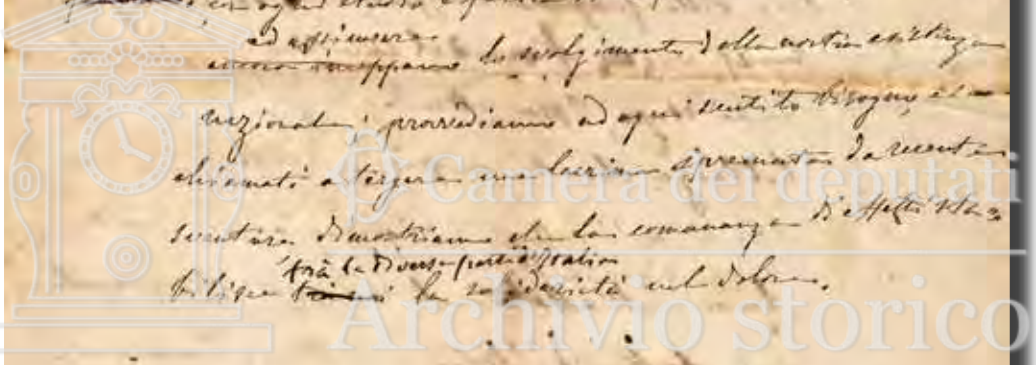 con ogni studio
ad assicurare
lo svolgimento della nostra esistenza
nazionale; provvediamo ad ogni sentito bisogno, e se
chiamati a tergere una lacrima spremuta da recente
sventura dimostriamo che la comunanza di affetti sta=
fra le diverse parti d'Italia
bilisce fra noi la solidarietà nel dolore.
Camera dei deputati
Archivio storico